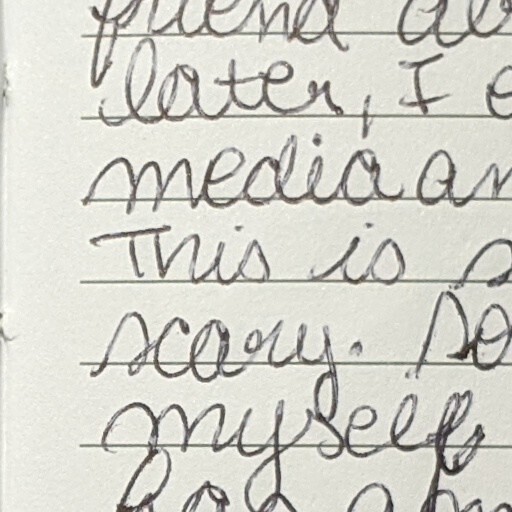 friend
later, I
media
This is
scary. So
myself